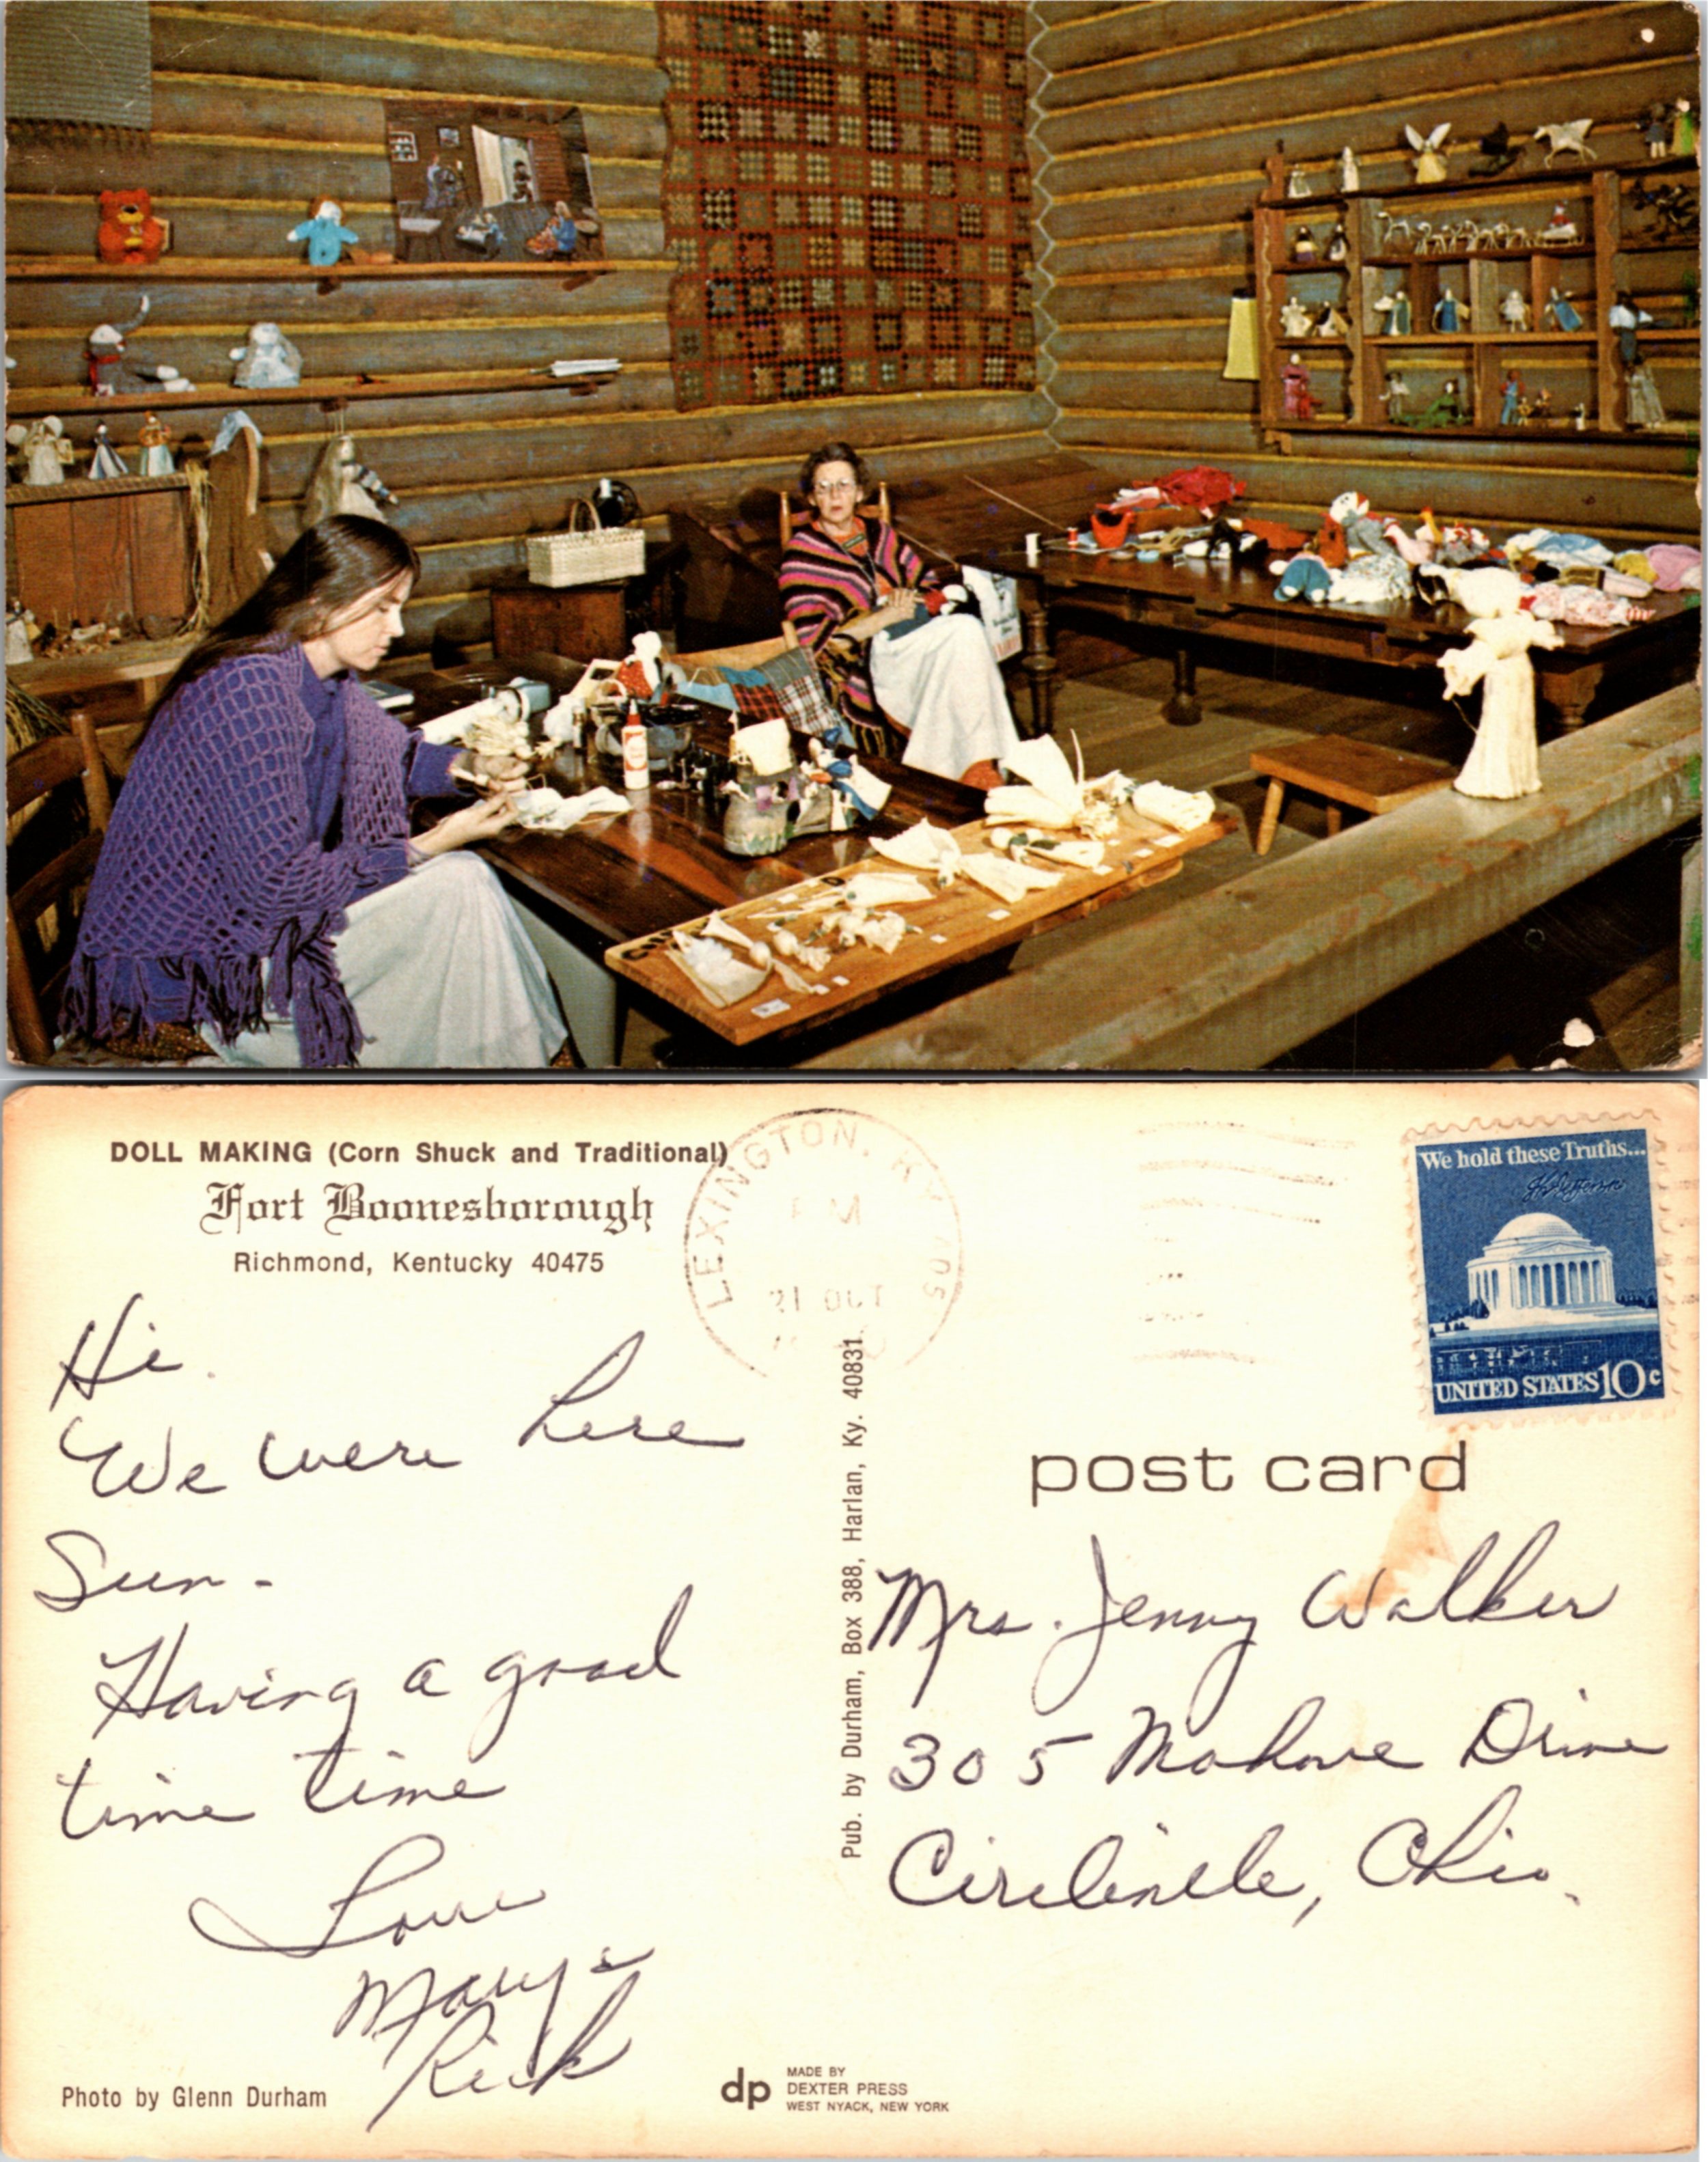 DOLL MAKING (Corn Shuck and Traditional)
Fort Boonesborough
Richmond, Kentucky 40475
LEXINGTON, KY 405
PM
21 OCT
We hold these Truths...
Th Jefferson
UNITED STATES 10c
post card
Hi.
We were here
Sun-
Having a good
time time
Love
Mary &
Rick
Pub. by Durham, Box 388, Harlan, Ky. 40831
Mrs. Jenny Walker
305 Drive
Circleville, Ohio.
Photo by Glenn Durham
dp
MADE BY
DEXTER PRESS
WEST NYACK, NEW YORK